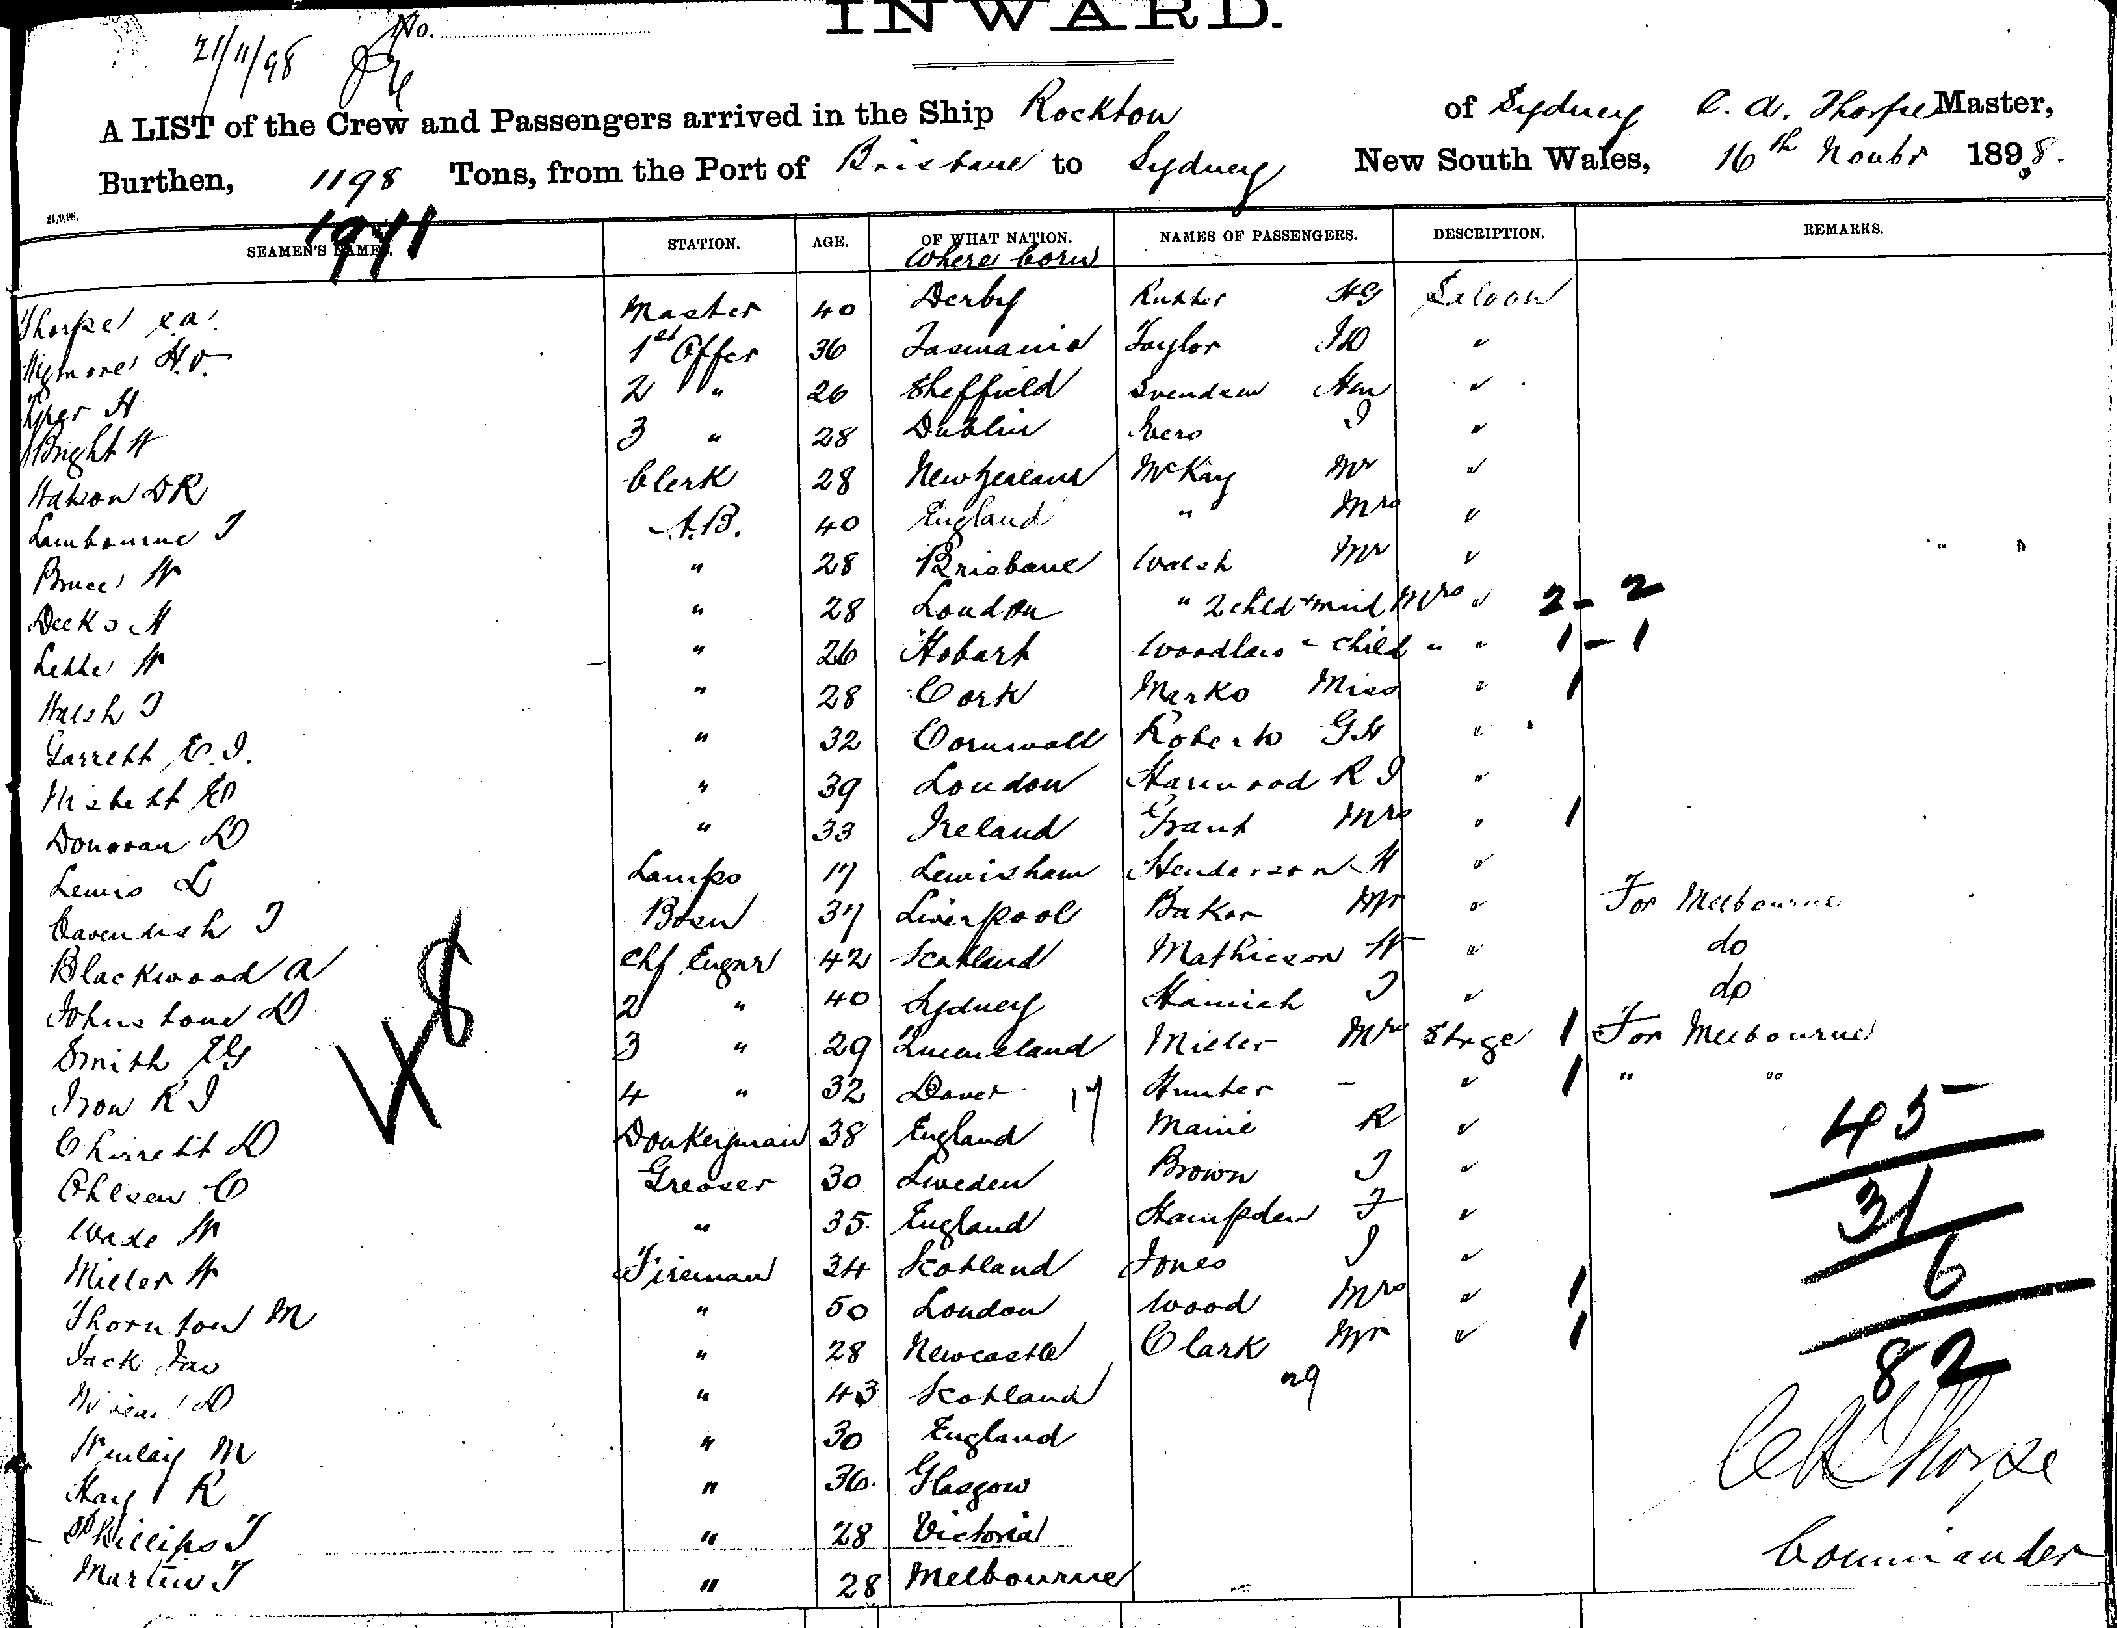 INWARD.
21/11/98 No.
A LIST of the Crew and Passengers arrived in the Ship Rockton of Sydney C. A. Thorpe Master,
Burthen, 1198 Tons, from the Port of Brisbane to Sydney New South Wales, 16th Novbr 1898.
1911
SEAMEN'S NAMES. STATION. AGE. OF WHAT NATION. NAMES OF PASSENGERS. DESCRIPTION. REMARKS.
Where born
Thorpe C A Master 40 Derby HG Saloon
Wigmore H. V. 1st Offer 36 Tasmania Taylor "
H 2 " 26 Sheffield Svendsen Hen "
Bright W 3 " 28 Dublin Ivers J "
Watson DR Clerk 28 New Zealand McKay Mr "
Lambourne J A.B. 40 England " Mrs "
Bruce W " 28 Brisbane Walsh Mr "
Deeks H " 28 London " 2 chld + maid Mrs " 2 - 2
W " 26 Hobart Woodlaw - child " " 1 - 1
Walsh J " 28 Cork Marks Miss " 1
Garrett E. J. " 32 Cornwall Roberts GH "
Nisbett " 39 London Harwood R J "
Donovan D " 33 Ireland Grant Mrs " 1
Lewis L Lamps 17 Lewisham Henderson H "
Cavendish J Bosn 37 Liverpool Baker Mr " For Melbourne
Blackwood A Chf Engnr 42 Scotland Mathieson W " do
Johnstone D 2 " 40 Sydney Hamish J " do
Smith EG 3 " 29 Queensland Miller Mrs Strge 1 For Melbourne
Iron R J 4 " 32 Dover 17 Hunter - " 1 " "
Chirrett D Donkeyman 38 England R "
Ohlsen C Greaser 30 Sweden Brown J "
Wade W " 35 England Hampden F "
Miller W Fireman 34 Scotland Jones J "
Thornton M " 50 London Wood Mrs " 1
Jack Jas " 28 Newcastle Clark Mrs " 1
Niven D " 43 Scotland 29
M " 30 England
Hay R " 36 Glasgow
Phillips J " 28 Victoria
Martin J " 28 Melbourne
48
45
31
6
82
C A Thorpe
Commander